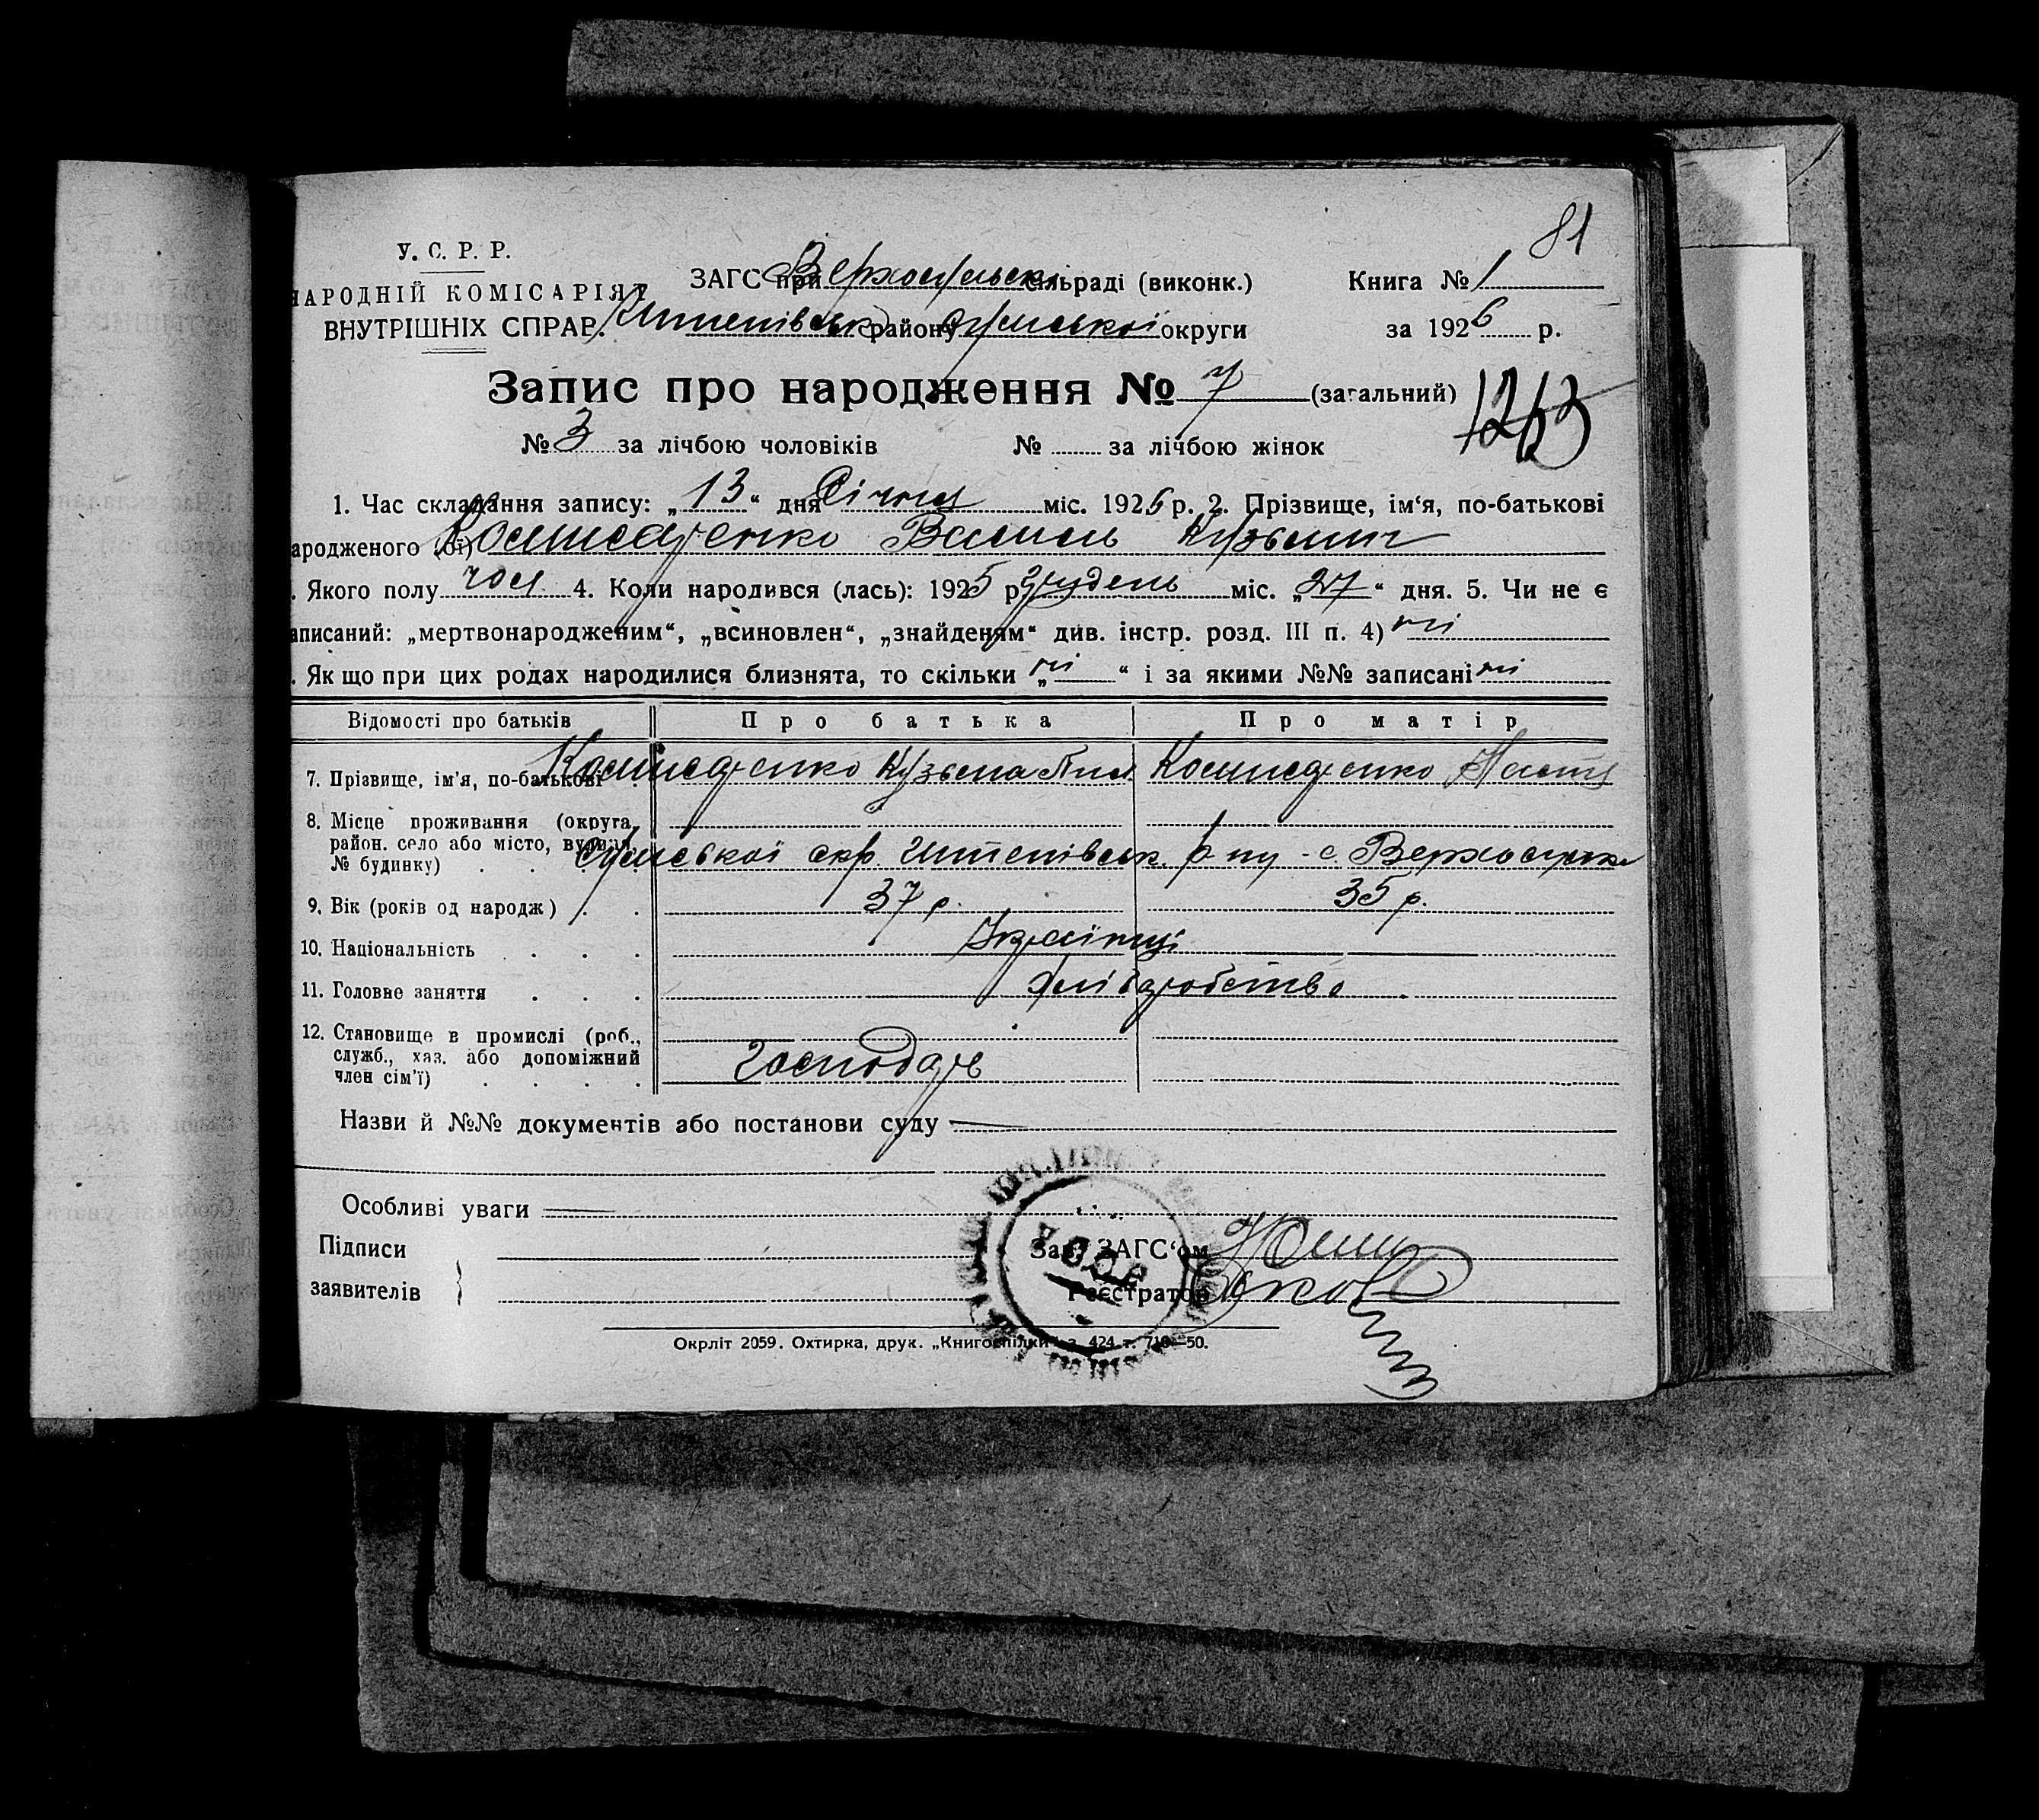 81
У. С. Р. Р.
НАРОДНІЙ КОМІСАРІЯТ
ВНУТРІШНІХ СПРАВ.
ЗАГС при Верхосульськ сільраді (виконк.)
Штепівськ району Сумської округи
Книга № 1
за 1926 р.
Запис про народження № 7 (загальний)
1263
№ 3 за лічбою чоловіків № за лічбою жінок
1. Час складання запису: „13“ дня Січня міс. 1926 р. 2. Прізвище, ім‘я, по-батькові
ародженого (ої) Комисаренко Василь Кузьмич
. Якого полу чол. 4. Коли народився (лась): 1925 р. грудень міс. „27“ дня. 5. Чи не є
аписаний: „мертвонародженим“, „всиновлен“, „знайденям“ див. інстр. розд. III п. 4) ні
. Як що при цих родах народилися близнята, то скільки „ні“ і за якими №№ записані ні
Відомості про батьків Про батька Про матір
7. Прізвище, ім‘я, по-батькові Комисаренко Кузьма Пил Комисаренко Настя
8. Місце проживання (округа,
район. село або місто, вулиця,
№ будинку)
Сумської окр. Штепівськ. р-ну - с. Верхосулка
9. Вік (років од народж) 37 р. 35 р.
10. Національність Українці
11. Головне заняття Хліборобство
12. Становище в промислі (роб.,
служб., хаз. або допоміжний
член сім‘ї)
Господарь
Назви й №№ документів або постанови суду
Особливі уваги
Підписи
заявителів
Зав. ЗАГС‘ом
Реєстратор
Окрліт 2059. Охтирка, друк. „Книгоспілки“ з. 424 т. 710—50.